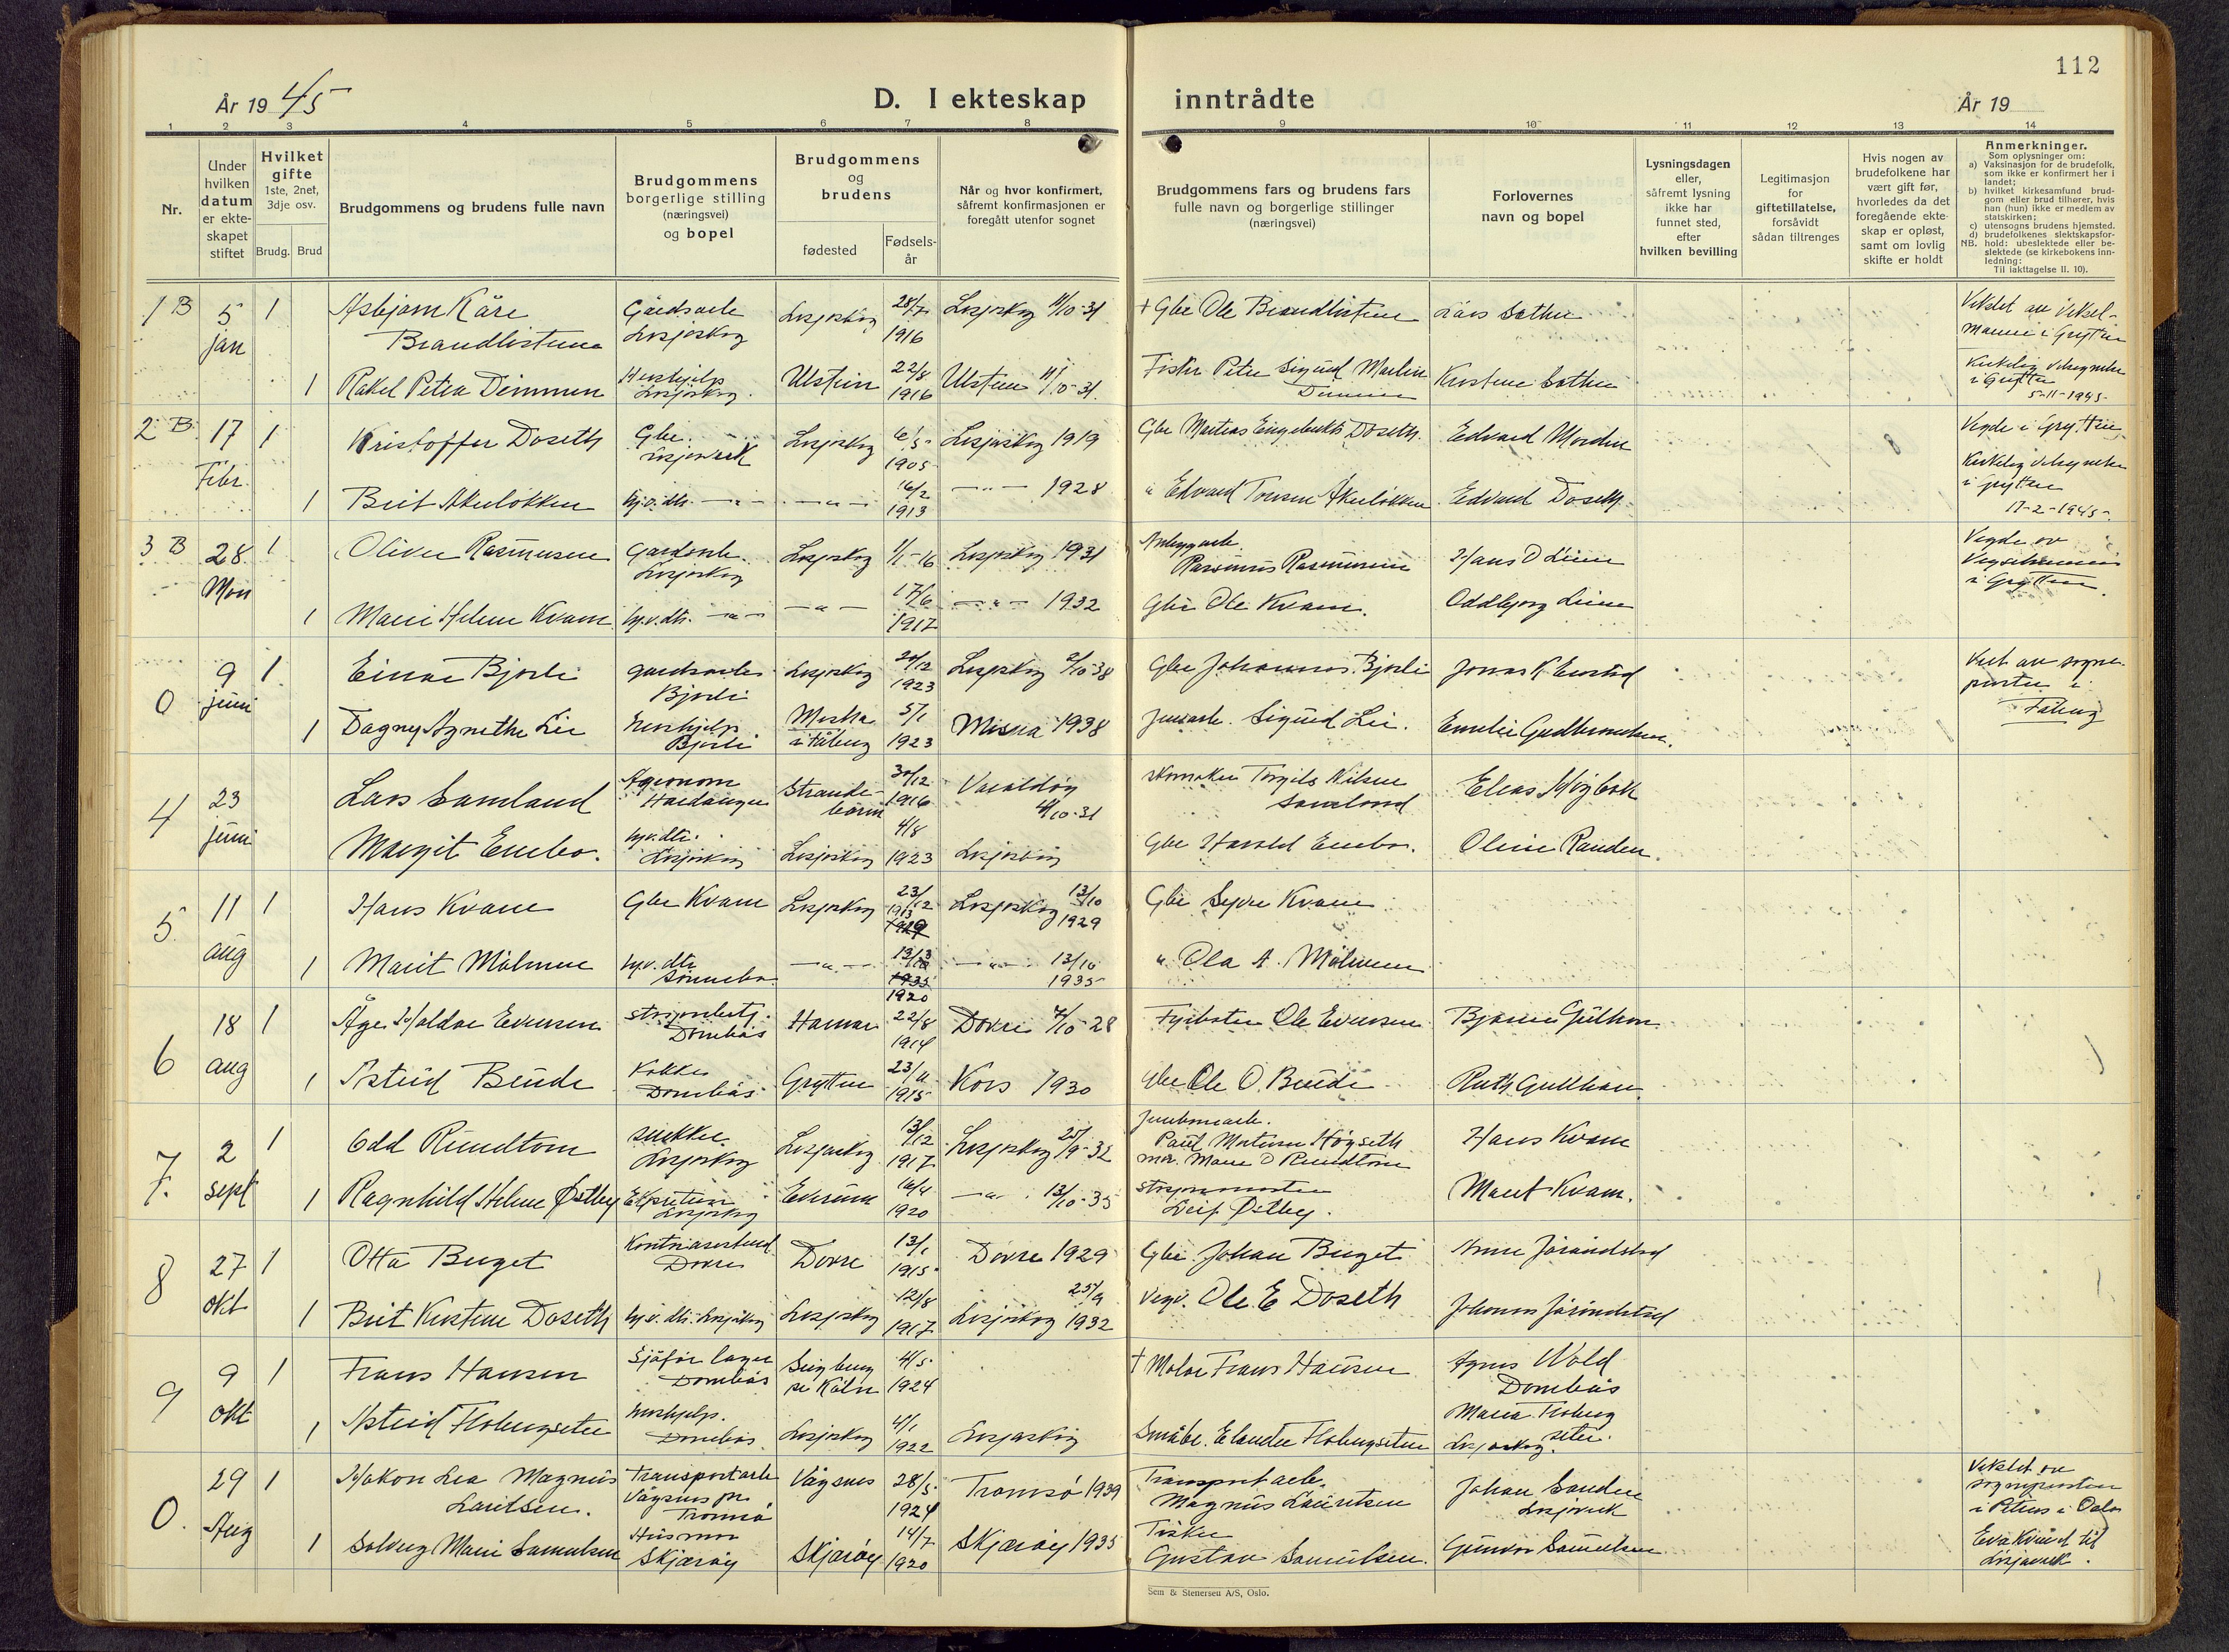 112
År 19 45
D. I ekteskap inntrådte
År 19
1 2 3 4 5 6 7 8 9 10 11 12 13 14
Nr.
Under
hvilken
datum
er ekte-
skapet
stiftet
Hvilket
gifte
1ste, 2net,
3dje osv.
Brudg. Brud
Brudgommens og brudens fulle navn
Brudgommens
borgerlige stilling
(næringsvei)
og bopel
Brudgommens
og
brudens
fødested
Fødsels-
år
Når og hvor konfirmert,
såfremt konfirmasjonen er
foregått utenfor sognet
Brudgommens fars og brudens fars
fulle navn og borgerlige stillinger
(næringsvei)
Forlovernes
navn og bopel
Lysningsdagen
eller,
såfremt lysning
ikke har
funnet sted,
efter
hvilken bevilling
Legitimasjon
for
giftetillatelse,
forsåvidt
sådan tiltrenges
Hvis nogen av
brudefolkene har
vært gift før,
hvorledes da det
foregående ekte-
skap er opløst,
samt om lovlig
skifte er holdt
Anmerkninger.
Som oplysninger om:
a) Vaksinasjon for de brudefolk,
som ikke er konfirmert her i
landet;
b) hvilket kirkesamfund brud-
gom eller brud tilhører, hvis
han (hun) ikke er medlem av
statskirken;
c) utensogns brudens hjemsted.
d) brudefolkenes slektskapsfor-
NB. hold: ubeslektede eller be-
slektede (se kirkebokens inn-
ledning:
Til iakttagelse II. 10).
1 B 5 jan 1 Asbjørn Kåre
Brandlistuen
Gårdsarb.
Lesjaskog
Lesjaskog 28/7 1916
Lesjaskog 11/10-31
+ Gbr Ole Brandlistuen
Lars Sæther
i Grytten
1 Rakel Petra Dimmen
Hushjelp
Lesjaskog
Ulstein 22/8 1916
Ulstein
Fisker Peter Sigurd Martin
Dimmen
Kirstine Sæther
i Grytten
5-11-1945
2 B 17 Febr. 1 Kristoffer Doseth
Gbr.
Lesjaverk
Lesjaskog 6/5 1905
Lesjaskog 1919
Gbr Mathias Engebrikts Doseth.
Edvard Mordin
i Grytten
1 Brit Åkerløkken
hj.v. dtr. —"—
—"— 16/2 1913
—"— 1928
" Edvard Tonsen Åkerløkken
Edvard Doseth
i Grytten
17-2-1945
3 B 28 1 Oliver Rasmussen
Gårdsarb.
Lesjaskog
Lesjaskog 1/1-16
Lesjaskog 1931
Anleggsarb
Rasmus Rasmussen
Hans O Leine
i Grytten
1 Marie Helene Kvam
hj.v. dtr. —"—
—"— 17/6 1917
—"— 1932
Gbr Ole Kvam.
Oddbjørg Leine
0 9 juni 1 Einar Bjorli
gårdsarb.
Bjorli
Lesjaskog 20/12 1923
Lesjaskog 2/10-38
Gbr Johannes Bjorli
Jonas K Enstad
Viet av sogne-
presten i
Fåberg
1 Dagny Agnethe Lie
Hushjelp
Bjorli
Mesna
i Fåberg 5/1 1923
Mesna 1938
Jernarb. Sigurd Lie.
Emelie Gudbrandsen.
4 23 juni Lars Samland
Agronom
Hardanger
Strande-
barm 30/12 1916
Varaldsøy
4/10-31
skomaker Torgils Nilsen
Samland
Elias Mogbæk
Margit Enebo.
hj.v. dtr.
Lesjaskog
Lesjaskog 4/8 1923
Lesjaskog
Gbr Harald Enebo.
Oline Randen.
5. 11 aug 1 Hans Kvam
Gbr Kvam
Lesjaskog 23/12 1913
Lesjaskog 13/10 1929
Gbr Syver Kvam
1 Marit Målmen
hj.v. dtr
Sønnebo.
—"— 1920
—"— 13/10 1935
" Ola A. Målmen
6 18 aug 1 Åge Haldor Evensen
Dombås
Hamar 22/8 1914
Dovre 7/10 28
Fyrbøter Ole Evensen
Bjarne Gullhav
1 Astrid Brude
Kokke
Dombås
Grytten 23/11 1915
Kors 1930
Gbr Ole O. Brude
Ruth Gullhav.
7. 2 sept 1 Odd Rundtom
snekker.
Lesjaskog
Lesjaskog 13/12 1917
Lesjaskog 25/9-32
Paul Mortensen Høgseth
mor. Marie O Rundtom
Hans Kvam
1 Ragnhild Helene Østby
Lesjaskog
Elverum 16/4 1920
—"— 13/10-35
Leif Østby.
Marit Kvam.
8 27 okt 1 Otta Berget
Dovre
Dovre 13/1 1915
Dovre 1929
Gbr Johan Berget
Anne Jørandstad
1 Brit Kirstine Doseth
hj.v. dtr. Lesjaskog
Lesjaskog 12/8 1917
Lesjaskog 25/9 1932
Vegv. Ole E Doseth
Johannes Jørandstad
9 9 okt 1 Frans Hansen
Sjåfør lager
Dombås
Siegburg
pr Køln 4/5 1924
+ Maler Frans Hansen
Agnes Wold
Dombås
1 Astrid Flobergseter
hushjelp.
Dombås
Lesjaskog 4/1 1922
Lesjaskog
Småbr. Elander Flobergseter
Maria Floberg
seter.
Lesjaskog
0. 29 Aug 1 Håkon Lea Magnus
Lauritsen.
Transportarb
Vågsnes pr.
Tromsø
Vågsnes 28/5 1924
Tromsø 1939
Transportarb.
Magnus Lauritsen
Johan Sander
Lesjaverk
sognepresten
i Petrus i Oslo
1 Solveig Marie Samuelsen
Husmor
Skjærvøy
Skjærvøy 14/7 1920
Skjærvøy 1935
Fisker
Gustav Samuelsen.
Gunvor Samuelsen
til
Lesjaverk.
Sem & Stenersen A/S, Oslo.